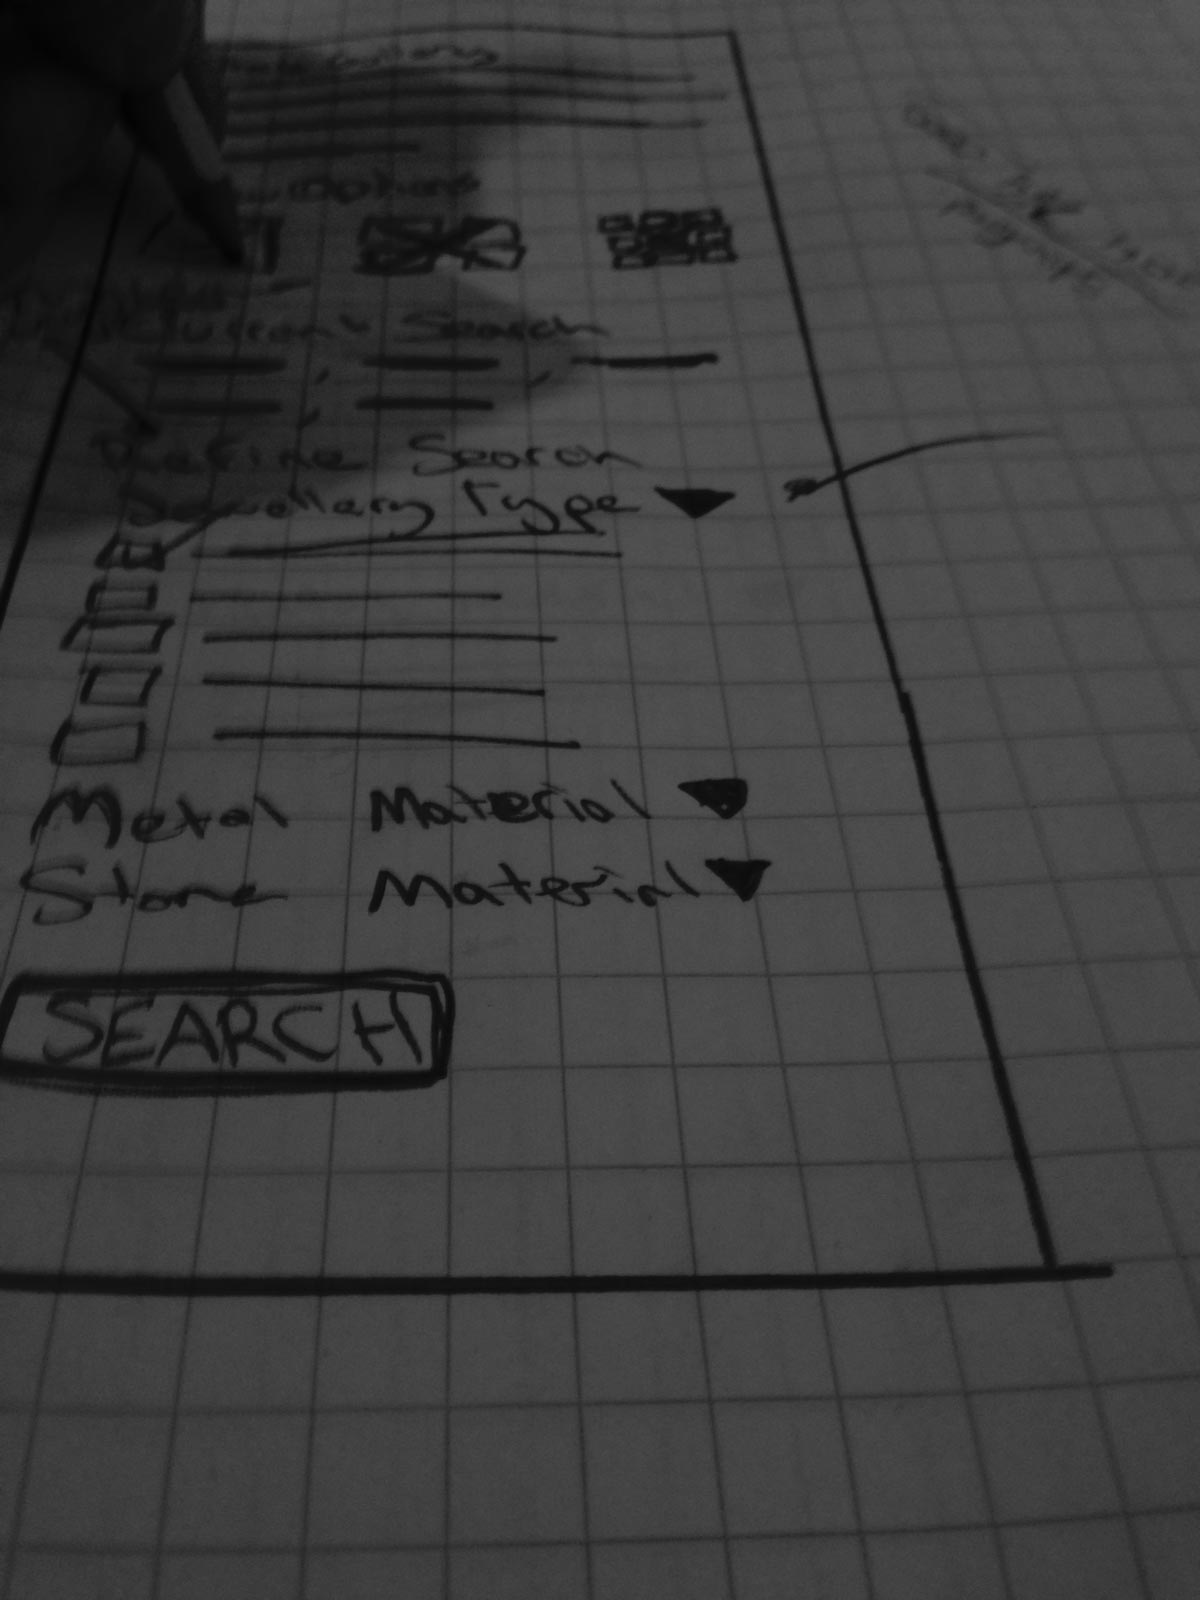 Options
Current Search
Refine Search
Jewellery Type
Metal Material
Stone Material
SEARCH